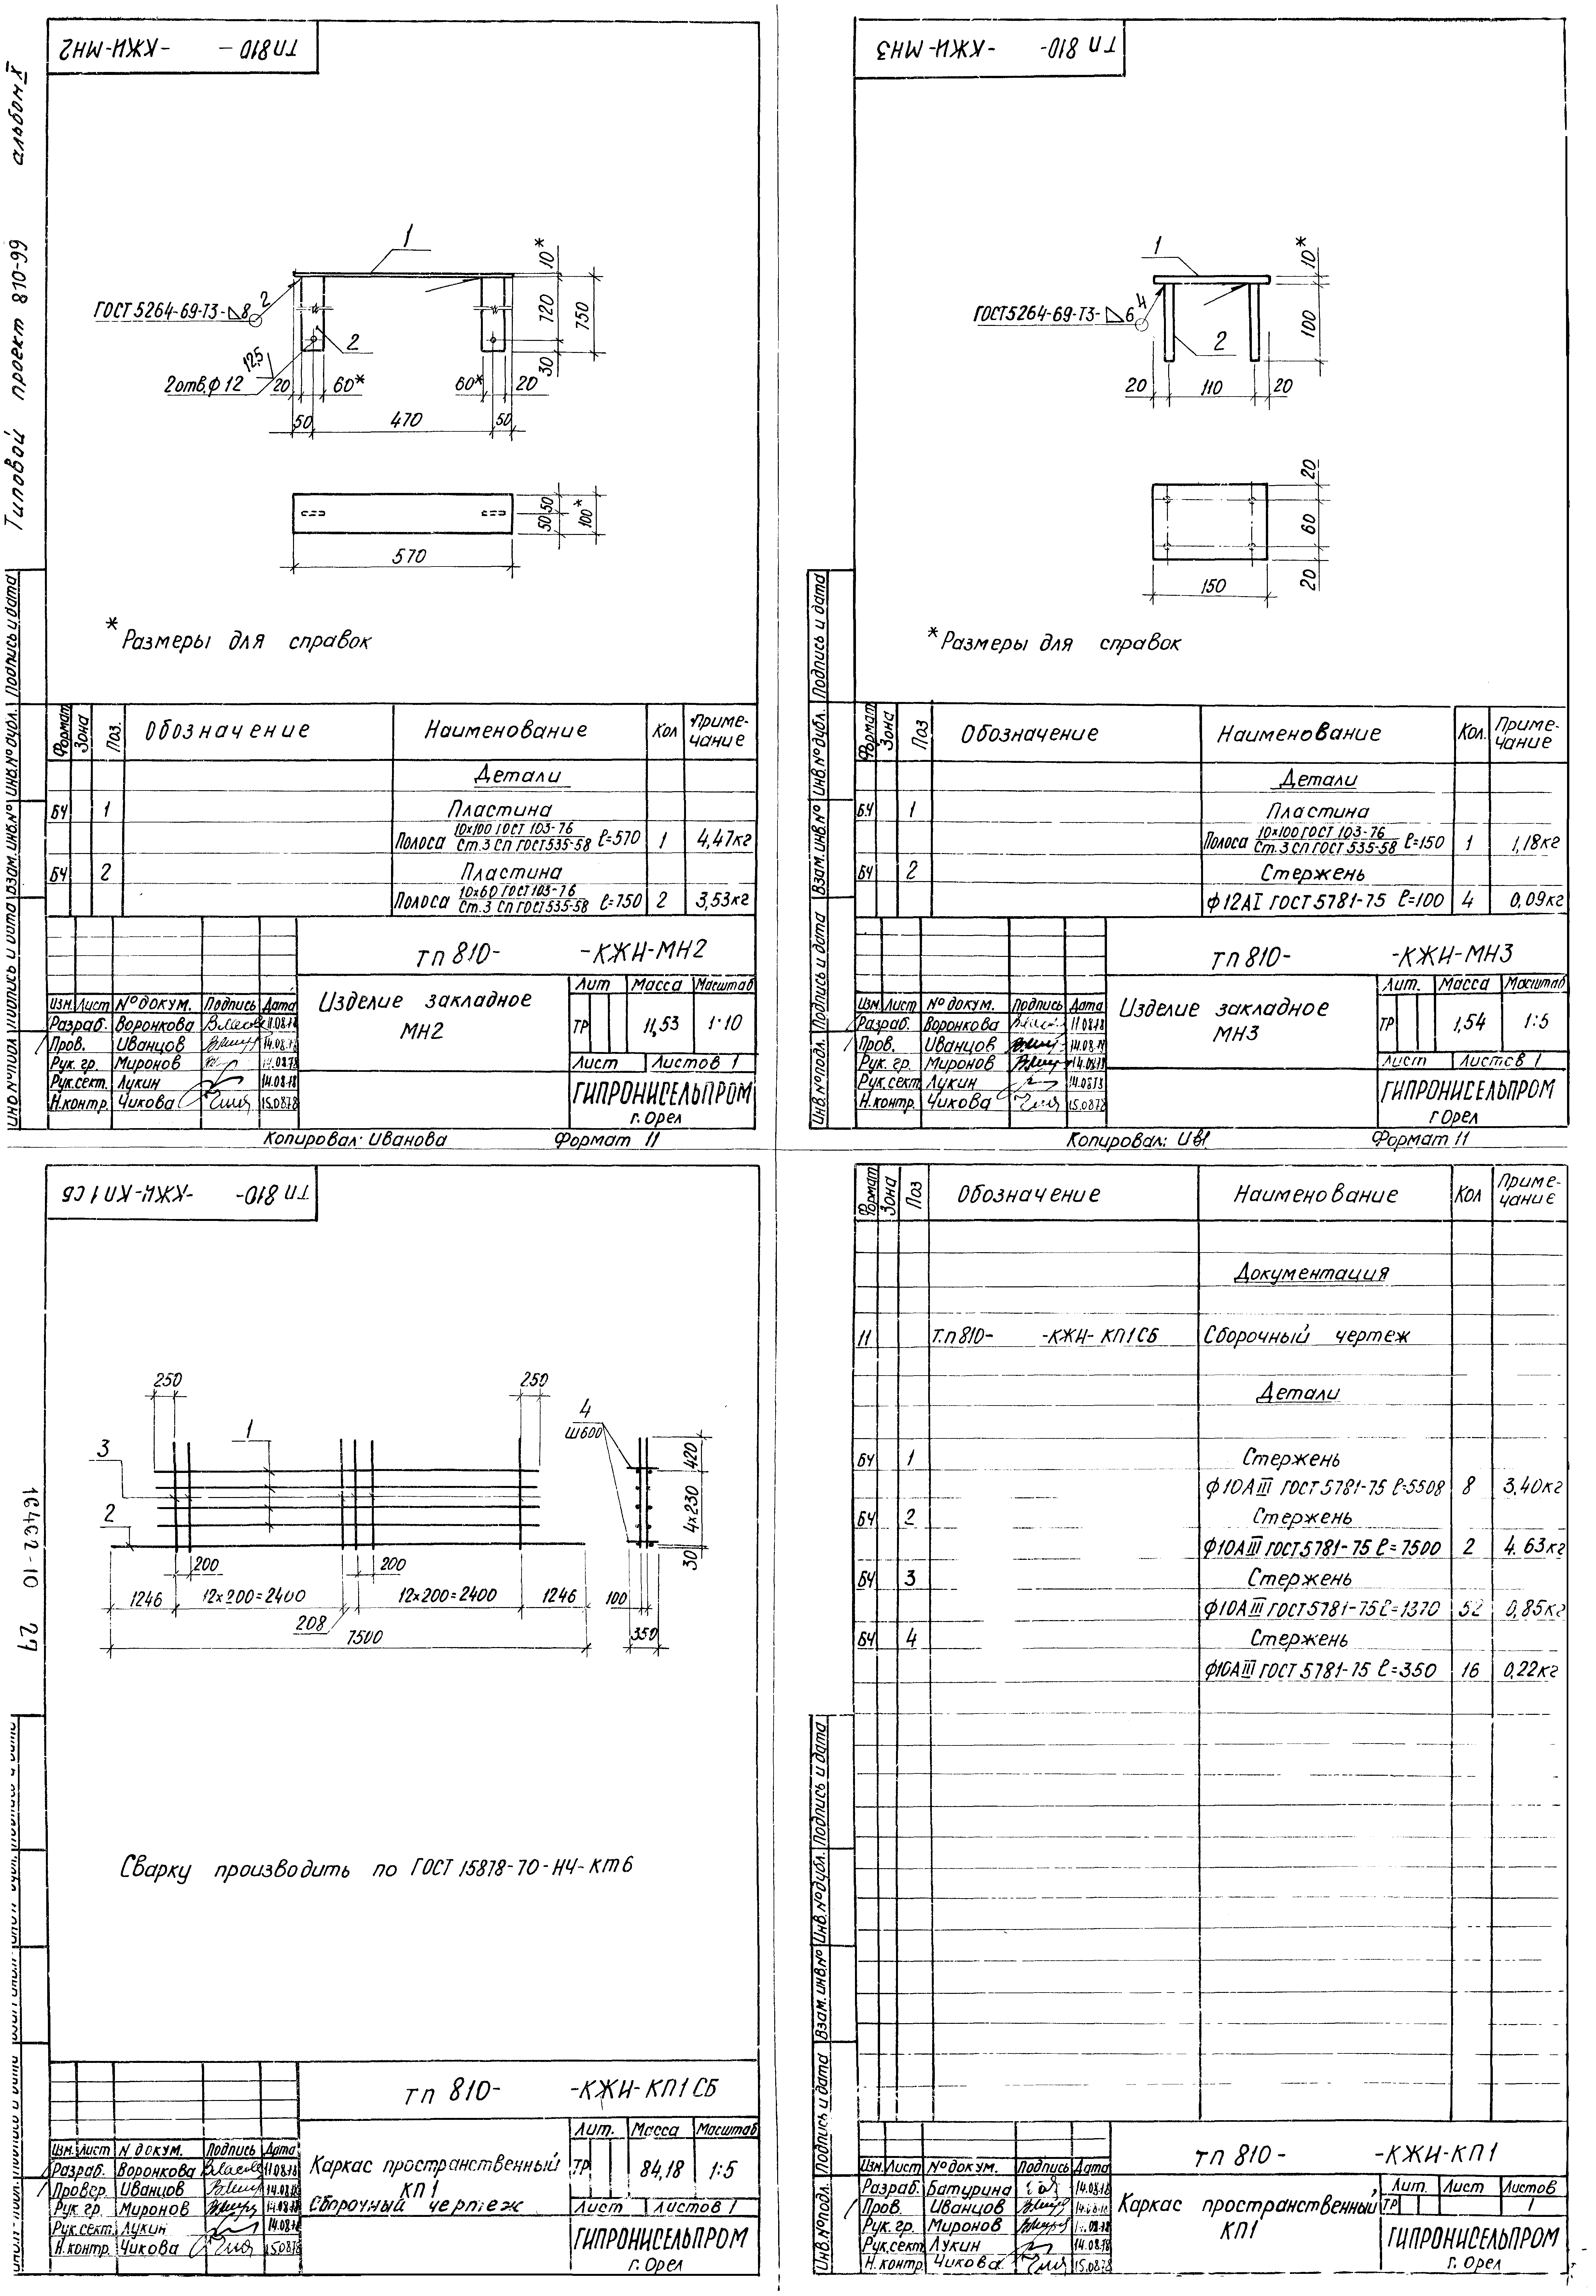 Типовой проект 810-99 альбом X
16462-10 27
ТП 810- -КЖИ-МН2
1
ГОСТ 5264-69-Т3-⊿8
2
2 отв. ф12
12,5
2
10*
720
750
30
20 60* 60* 20
50 470 50
50 50 100*
570
* Размеры для справок
Формат Зона Поз. Обозначение Наименование Кол Примечание
Детали
БЧ 1 Пластина
Полоса 10х100 ГОСТ 103-76 / Ст.3 сп ГОСТ 535-58 ℓ=570 1 4,47кг
БЧ 2 Пластина
Полоса 10х60 ГОСТ 103-76 / Ст.3 сп ГОСТ 535-58 ℓ=750 2 3,53кг
тп 810- -КЖИ-МН2
Изделие закладное
МН2
Лит Масса Масштаб
ТР 11,53 1:10
Лист Листов 1
Изм. Лист № докум. Подпись Дата
Разраб. Воронкова 11.08.78
Пров. Иванцов 14.08.78
Рук. гр. Миронов 14.08.78
Рук.сект. Лукин 14.08.78
Н.контр. Чикова 15.08.78
ГИПРОНИСЕЛЬПРОМ
г. Орел
Копировал: Иванова Формат 11
Инв.№подл. Подпись и дата Взам.инв.№ Инв.№дубл. Подпись и дата
ТП 810- -КЖИ-МН3
1
ГОСТ 5264-69-Т3-⊿6
4
2
10*
100
20 110 20
20
60
20
150
* Размеры для справок
Формат Зона Поз Обозначение Наименование Кол. Примечание
Детали
БЧ 1 Пластина
Полоса 10х100 ГОСТ 103-76 / Ст.3 сп ГОСТ 535-58 ℓ=150 1 1,18кг
БЧ 2 Стержень
ф12АI ГОСТ 5781-75 ℓ=100 4 0,09кг
тп 810- -КЖИ-МН3
Изделие закладное
МН3
Лит. Масса Масштаб
ТР 1,54 1:5
Лист Листов 1
Изм Лист № докум. Подпись Дата
Разраб. Воронкова 11.08.78
Пров. Иванцов 14.08.78
Рук. гр. Миронов 14.08.78
Рук.сект Лукин 14.08.78
Н.контр. Чикова 15.08.78
ГИПРОНИСЕЛЬПРОМ
г. Орел
Копировал: Формат 11
Инв.№подл. Подпись и дата Взам.инв.№ Инв.№дубл. Подпись и дата
ТП 810- -КЖИ-КП1СБ
250 250
1
3
2
4
ш600
420
4х230
30
200 200
1246 12х200=2400 12х200=2400 1246
208
7500
100
350
Сварку производить по ГОСТ 15878-70-Н4-Кт6
тп 810- -КЖИ-КП1СБ
Каркас пространственный
КП1
Сборочный чертеж
Лит. Масса Масштаб
ТР 84,18 1:5
Лист Листов 1
Изм. Лист N докум. Подпись Дата
Разраб. Воронкова 11.08.78
Провер. Иванцов 14.08.78
Рук. гр. Миронов 14.08.78
Рук.сект. Лукин 14.08.78
Н.контр. Чикова 15.08.78
ГИПРОНИСЕЛЬПРОМ
г. Орел
Формат Зона Поз Обозначение Наименование Кол Примечание
Документация
11 т.п 810- -КЖИ-КП1СБ Сборочный чертеж
Детали
БЧ 1 Стержень
ф10АIII ГОСТ 5781-75 ℓ=5508 8 3,40кг
БЧ 2 Стержень
ф10АIII ГОСТ 5781-75 ℓ=7500 2 4.63кг
БЧ 3 Стержень
ф10АIII ГОСТ 5781-75 ℓ=1370 52 0,85кг
БЧ 4 Стержень
ф10АIII ГОСТ 5781-75 ℓ=350 16 0,22кг
тп 810- -КЖИ-КП1
Каркас пространственный
КП1
Лит. Лист Листов
ТР 1
Изм. Лист № докум. Подпись Дата
Разраб. Батурина 14.08.78
Пров. Иванцов
Рук. гр. Миронов
Рук.сект Лукин 14.08.78
Н.контр Чикова 15.08.78
ГИПРОНИСЕЛЬПРОМ
г. Орел
Инв.№подл. Подпись и дата Взам.инв.№ Инв.№дубл. Подпись и дата